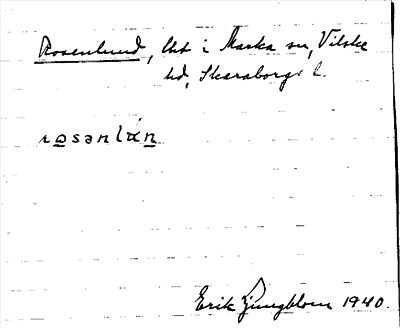 Rosenlund, lht i Marka sn, Vilske
hd, Skaraborgs l.
rosənlán
Erik Ljungblom 1940.